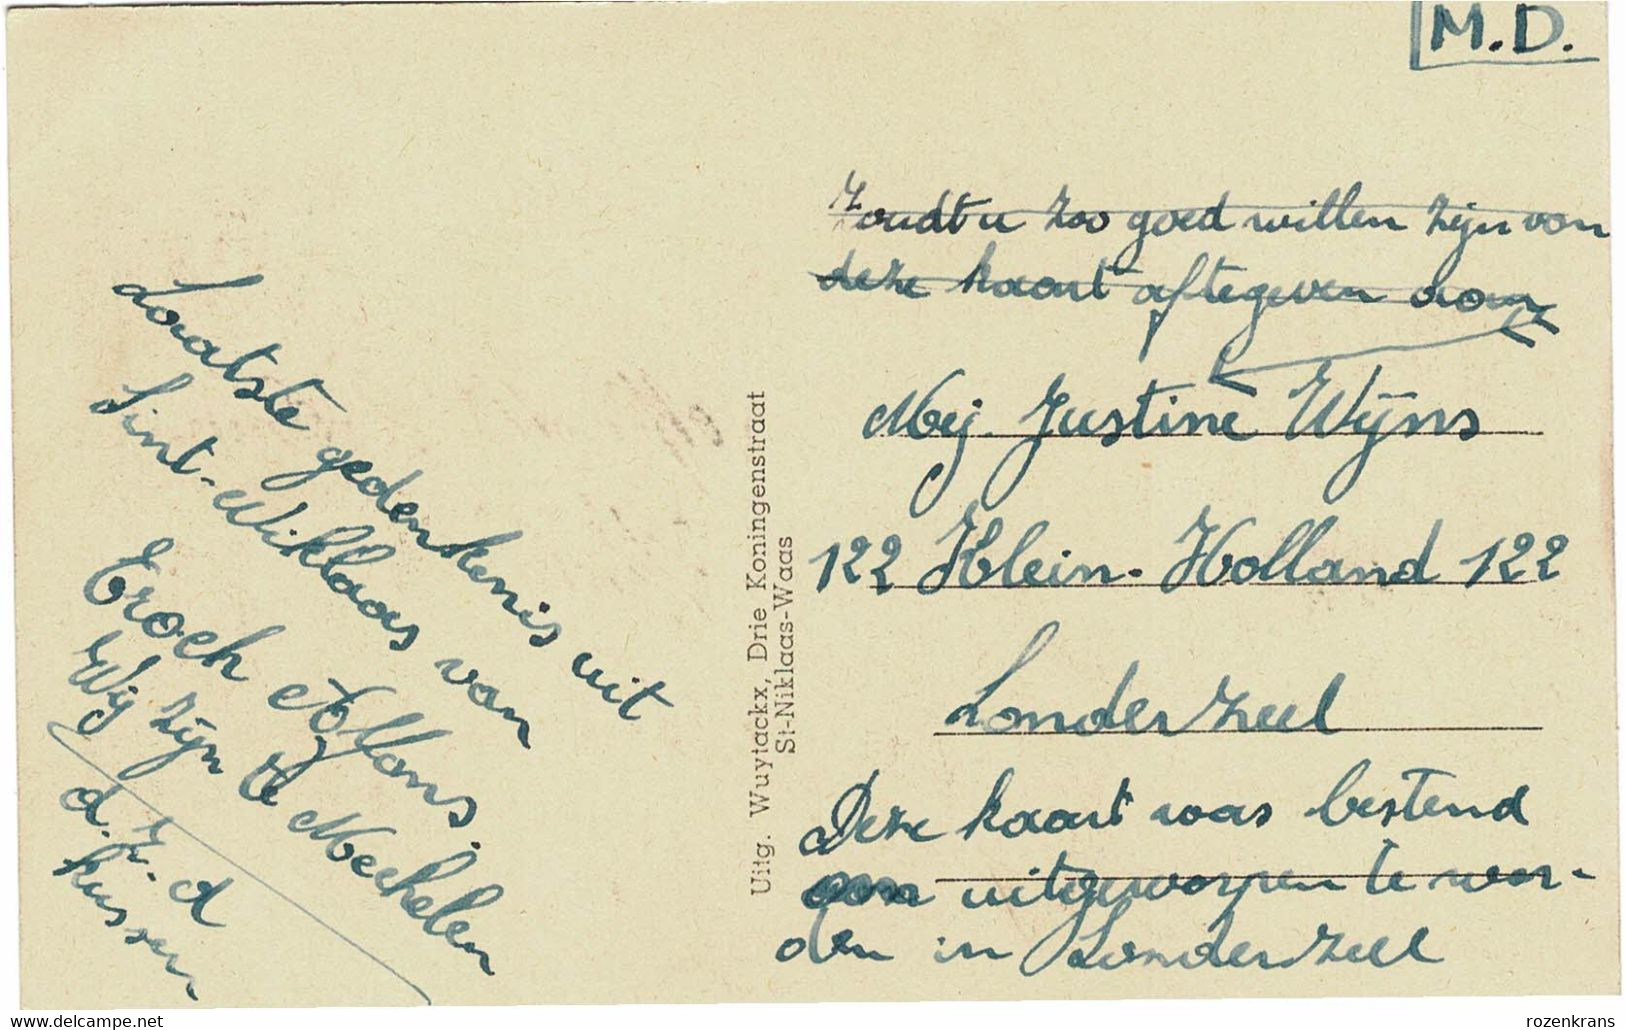 M.D.
Laatste gedenkenis uit
Sint-Niklaas van
Eroch Alfons.
Wij zijn te Mechelen
d. z. d
kussen
Uitg. Wuytackx, Drie Koningenstraat
St-Niklaas-Waas
Zoudt u zoo goed willen zijn van
deze kaart aftegeven aan
Mej. Justine Wijns
122 Klein-Holland 122
Londerzeel
Deze kaart was bestend
om uitgeworpen te wor-
den in Londerzeel
www.delcampe.net
rozenkrans